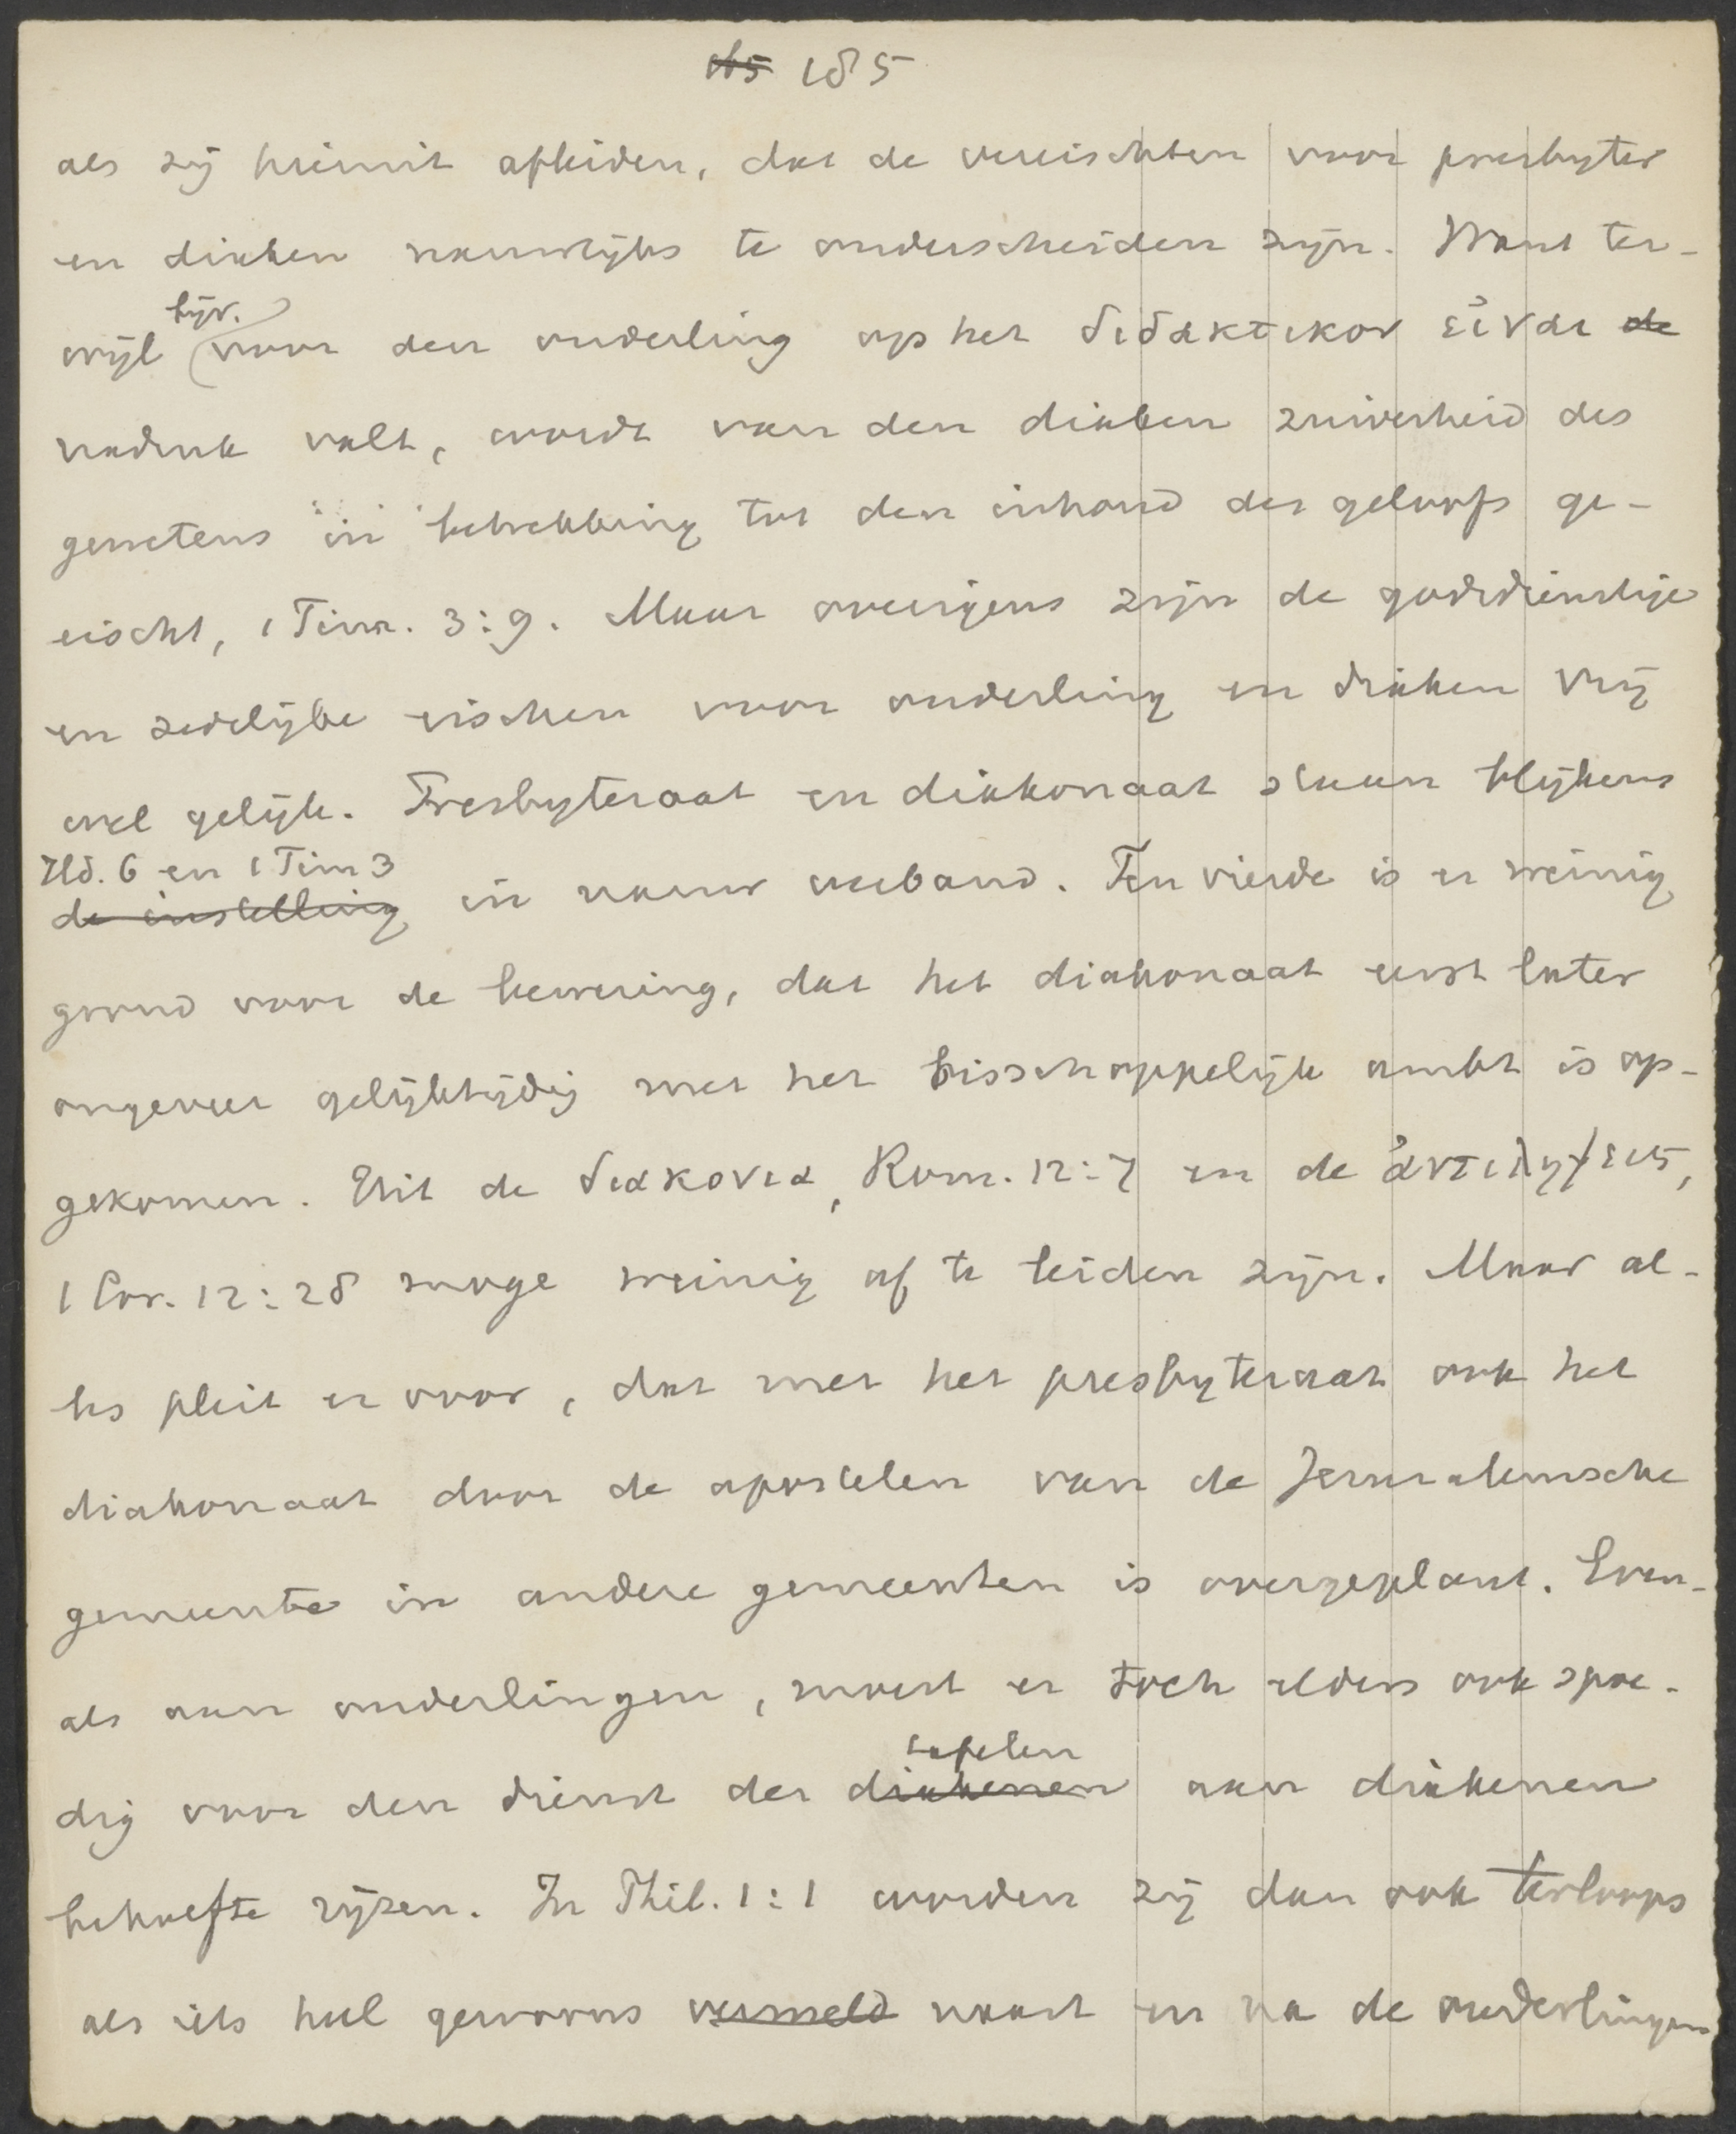 185
als zij hieruit afleiden, dat de vereischten voor presbyter
en diaken nauwelijks te onderscheiden zijn. Want ter-
bijv.
wijl voor den ouderling op het διδακτικον εἰναι de
nadruk valt, wordt van den diaken zuiverheid des
gewetens in betrekking tot den inhoud des geloofs ge-
eischt, 1 Tim. 3:9. Maar overigens zijn de godsdienstige
en zedelijke eischen voor ouderling en diaken vrij
wel gelijk. Presbyteraat en diakonaat staan blijkens
Hd. 6 en 1 Tim 3
de instelling in nauw verband. Ten vierde is er weinig
grond voor de bewering, dat het diakonaat eerst later
ongeveer gelijktijdig met het bisschoppelijk ambt is op-
gekomen. Uit de διακονια, Rom. 12:7 en de ἀντιληψεις,
1 Cor. 12:28 moge weinig af te leiden zijn. Maar al-
les pleit er voor, dat met het presbyteraat ook het
diakonaat door de apostelen van de Jeruzalemsche
gemeente in andere gemeenten is overgeplant. Even-
als aan ouderlingen, moest er toch elders ook spoe-
tafelen
dig voor den dienst der diakenen aan diakenen
behoefte rijzen. In Phil. 1:1 worden zij dan ook terloops
als iets heel gewoons vermeld naast en na de ouderlingen